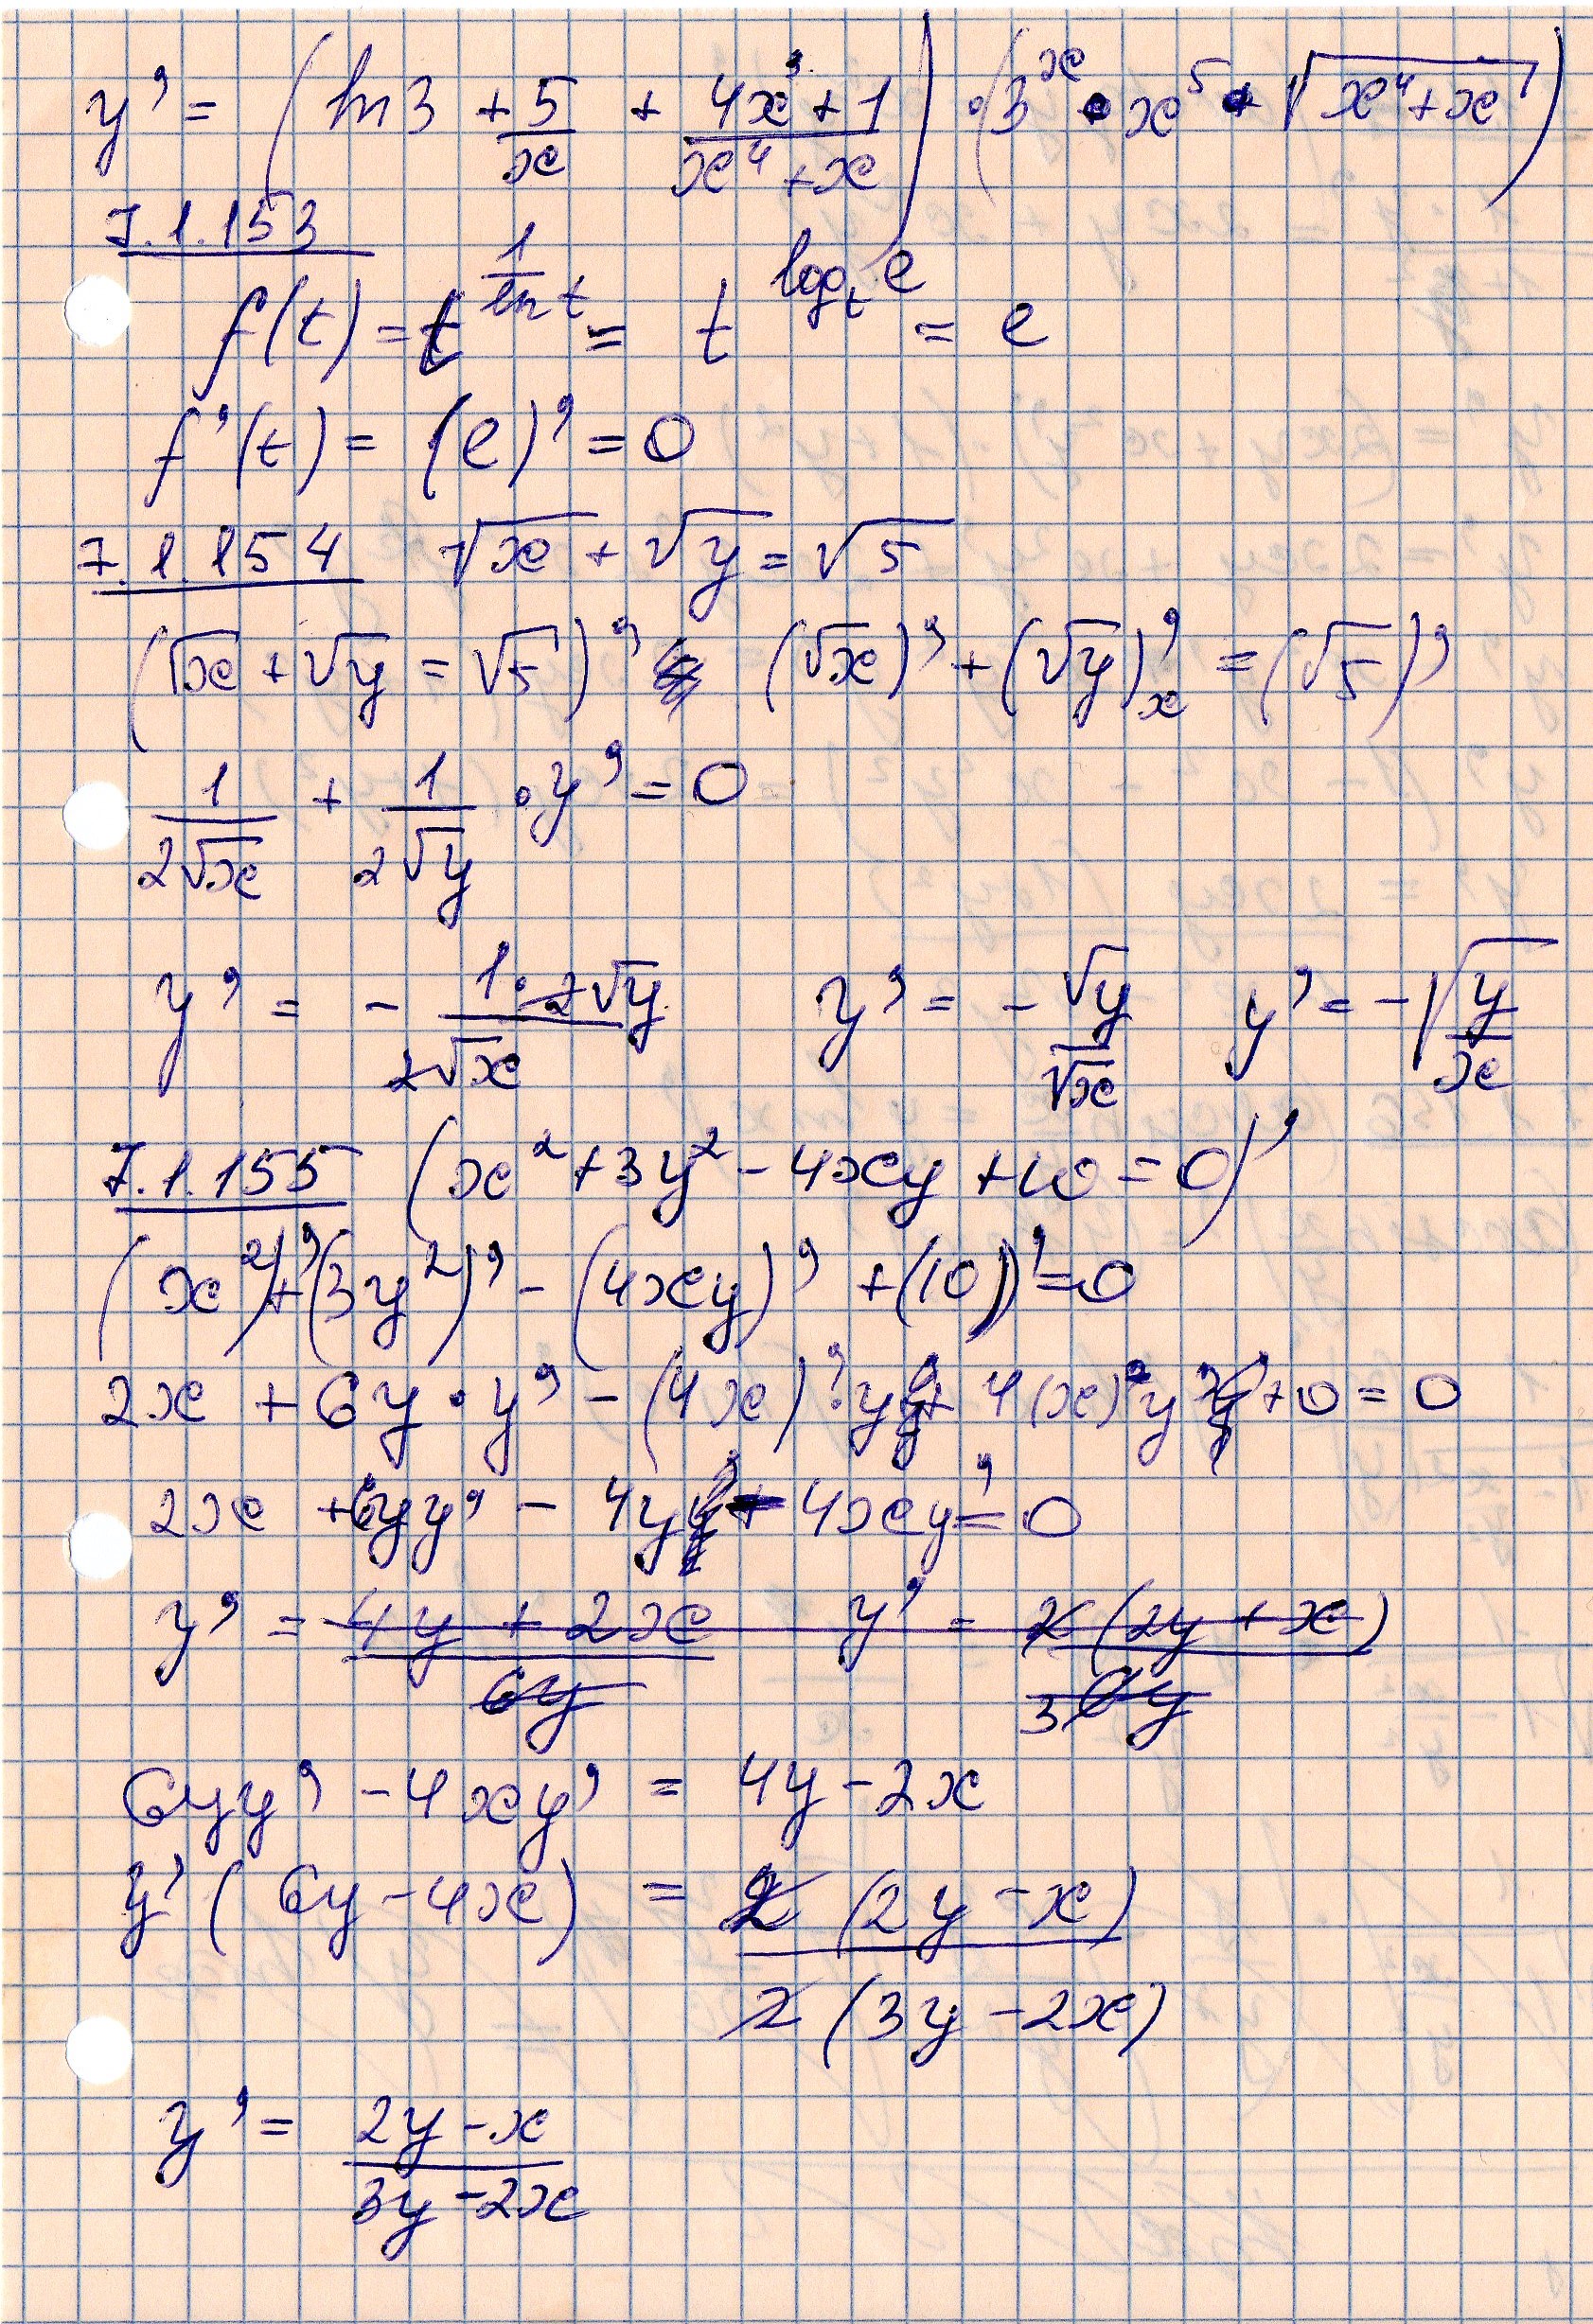 y' = (ln3 + 5/x + (4x³+1)/(x⁴+x)) · (3ˣ · x⁵ · √(x⁴+x))
7.1.153
f(t) = t^(1/ln t) = t^(log_t e) = e
f'(t) = (e)' = 0
7.1.154 √x + √y = √5
(√x + √y = √5)' (√x)' + (√y)'ₓ = (√5)'
1/(2√x) + 1/(2√y) · y' = 0
y' = - (1·2√y)/(2√x) y' = - √y/√x y' = -√(y/x)
7.1.155 (x² + 3y² - 4xy + 10 = 0)'
(x²)' + (3y²)' - (4xy)' + (10)' = 0
2x + 6y · y' - (4x)' · y + 4(x) y' + 0 = 0
2x + 6yy' - 4y - 4xy' = 0
y' = (4y + 2x)/(6y) y' = (2(2y + x))/(3 6y)
6yy' - 4xy' = 4y - 2x
y' (6y - 4x) = (2(2y - x))/(2(3y - 2x))
y' = (2y - x)/(3y - 2x)